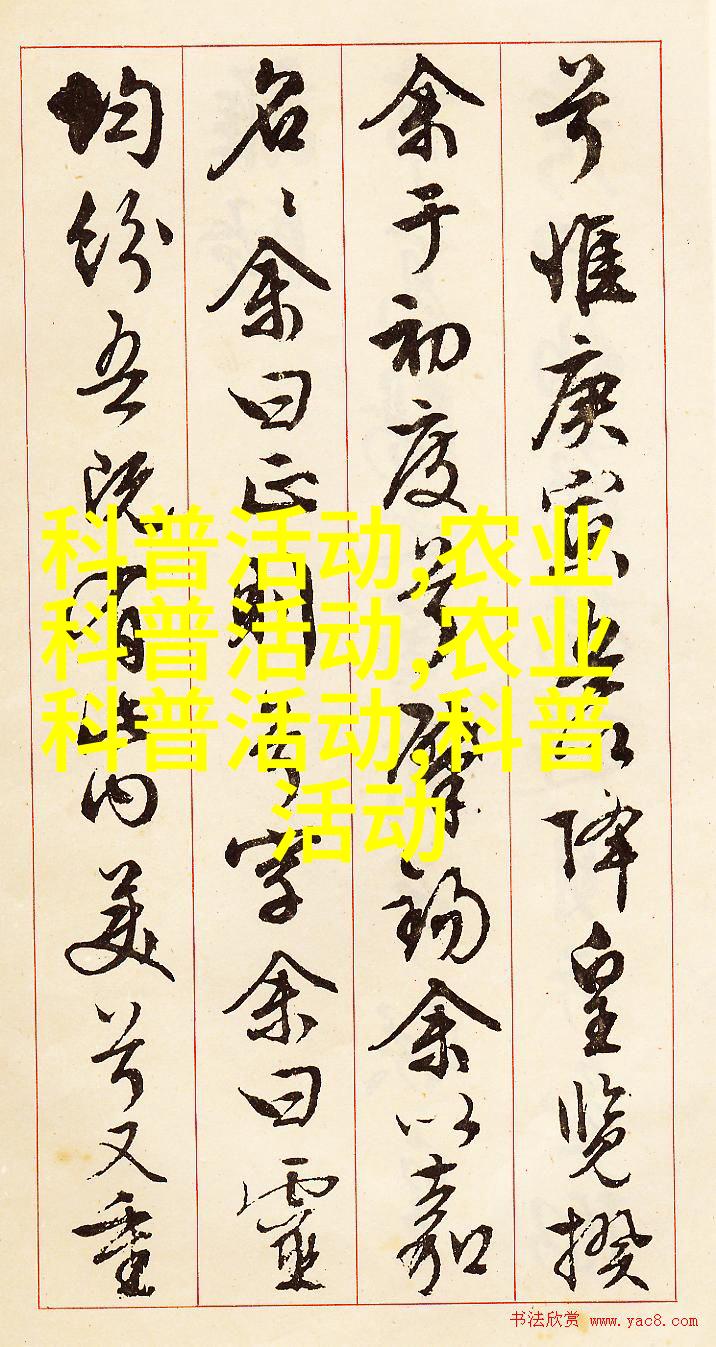 兮惟庚寅吾以降皇览揆
余于初度兮肇锡余以嘉
名〻余曰正则兮字余曰靈
均纷吾既有此内美兮又重
科普活动,农业
科普活动,农业
科普活动,科普
活动
书法欣赏 www.yac8.com